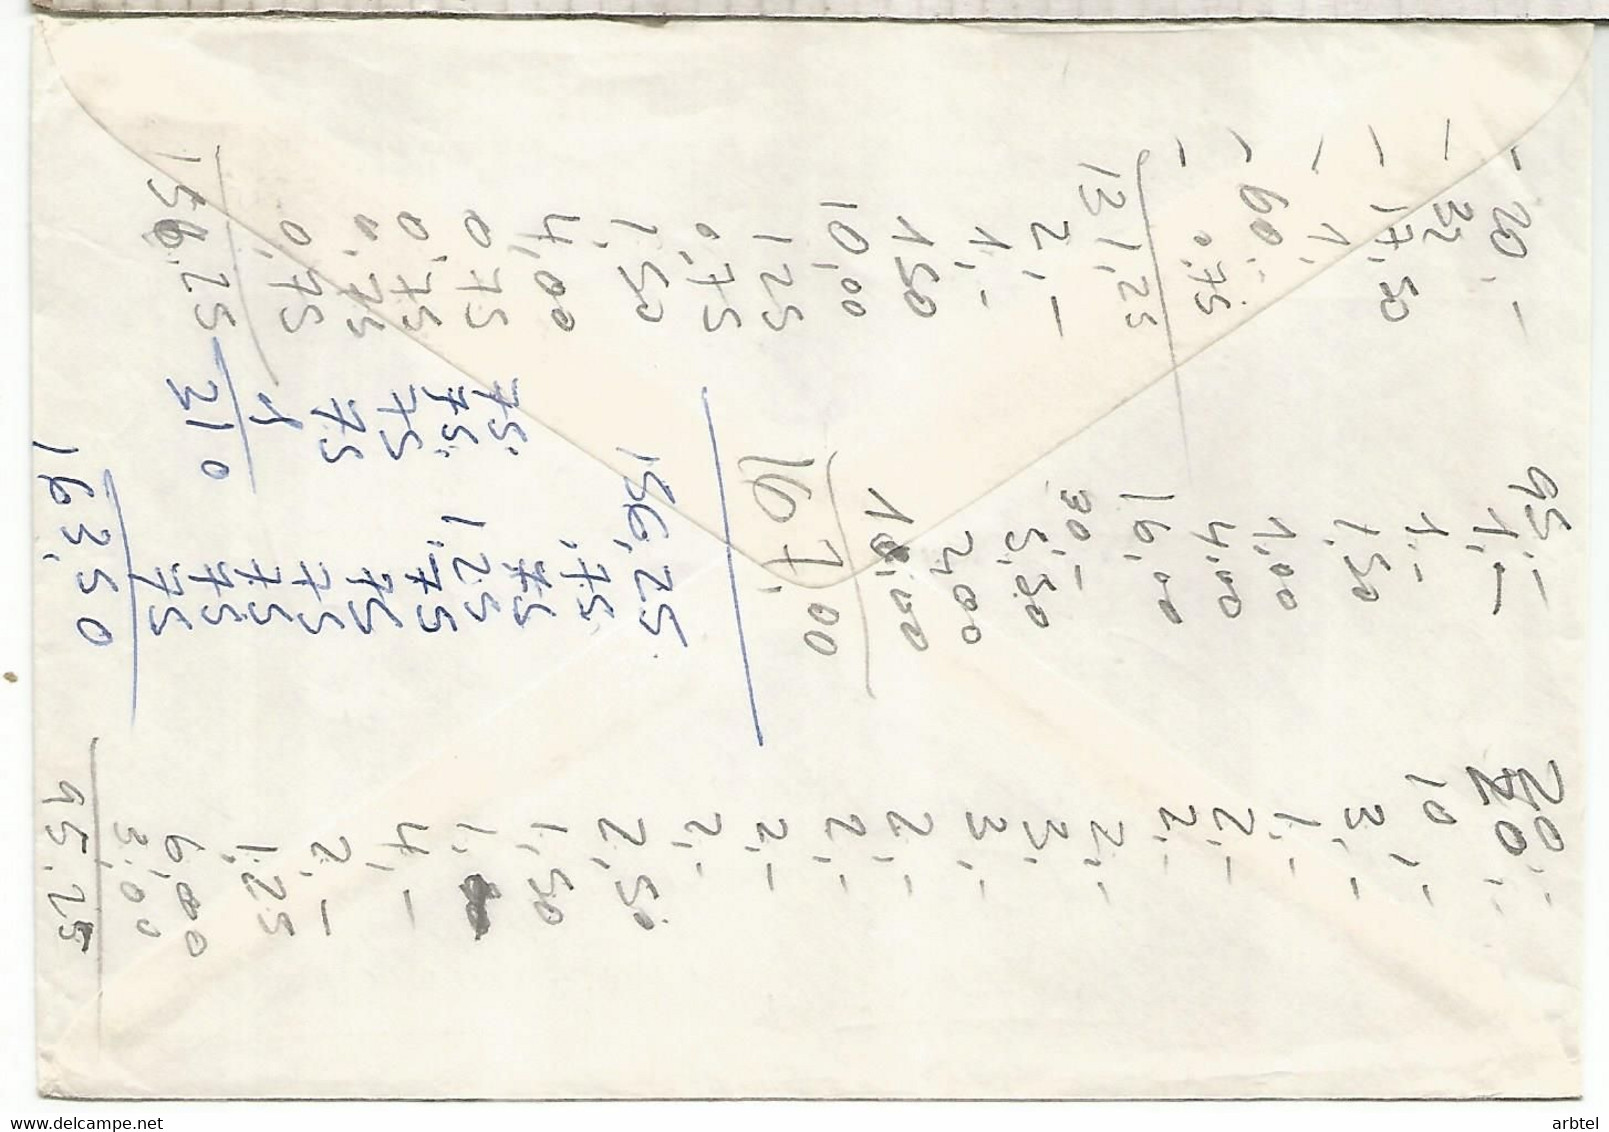 20,-
32
17,50
1,-
60,-
0,75
131,25
2,-
1,-
1,50
10,00
1,25
0,75
1,50
4,00
0,75
0,75
0,75
0,75
156,25
75
75
75
75
1
310
95,-
1,-
1,-
1,50
1,00
4,00
16,00
30,-
5,50
2,00
10,00
167,00
156,25
.75
.75
1,25
75
75
75
75
75
75
163,50
20,-
20,-
10,-
3,-
1,-
2,-
2,-
2,-
3,-
3,-
2,-
2,-
2,-
2,-
2,50
1,50
1,
4,-
2,-
1,25
6,00
3,00
95,25
www.delcampe.net
arbtel